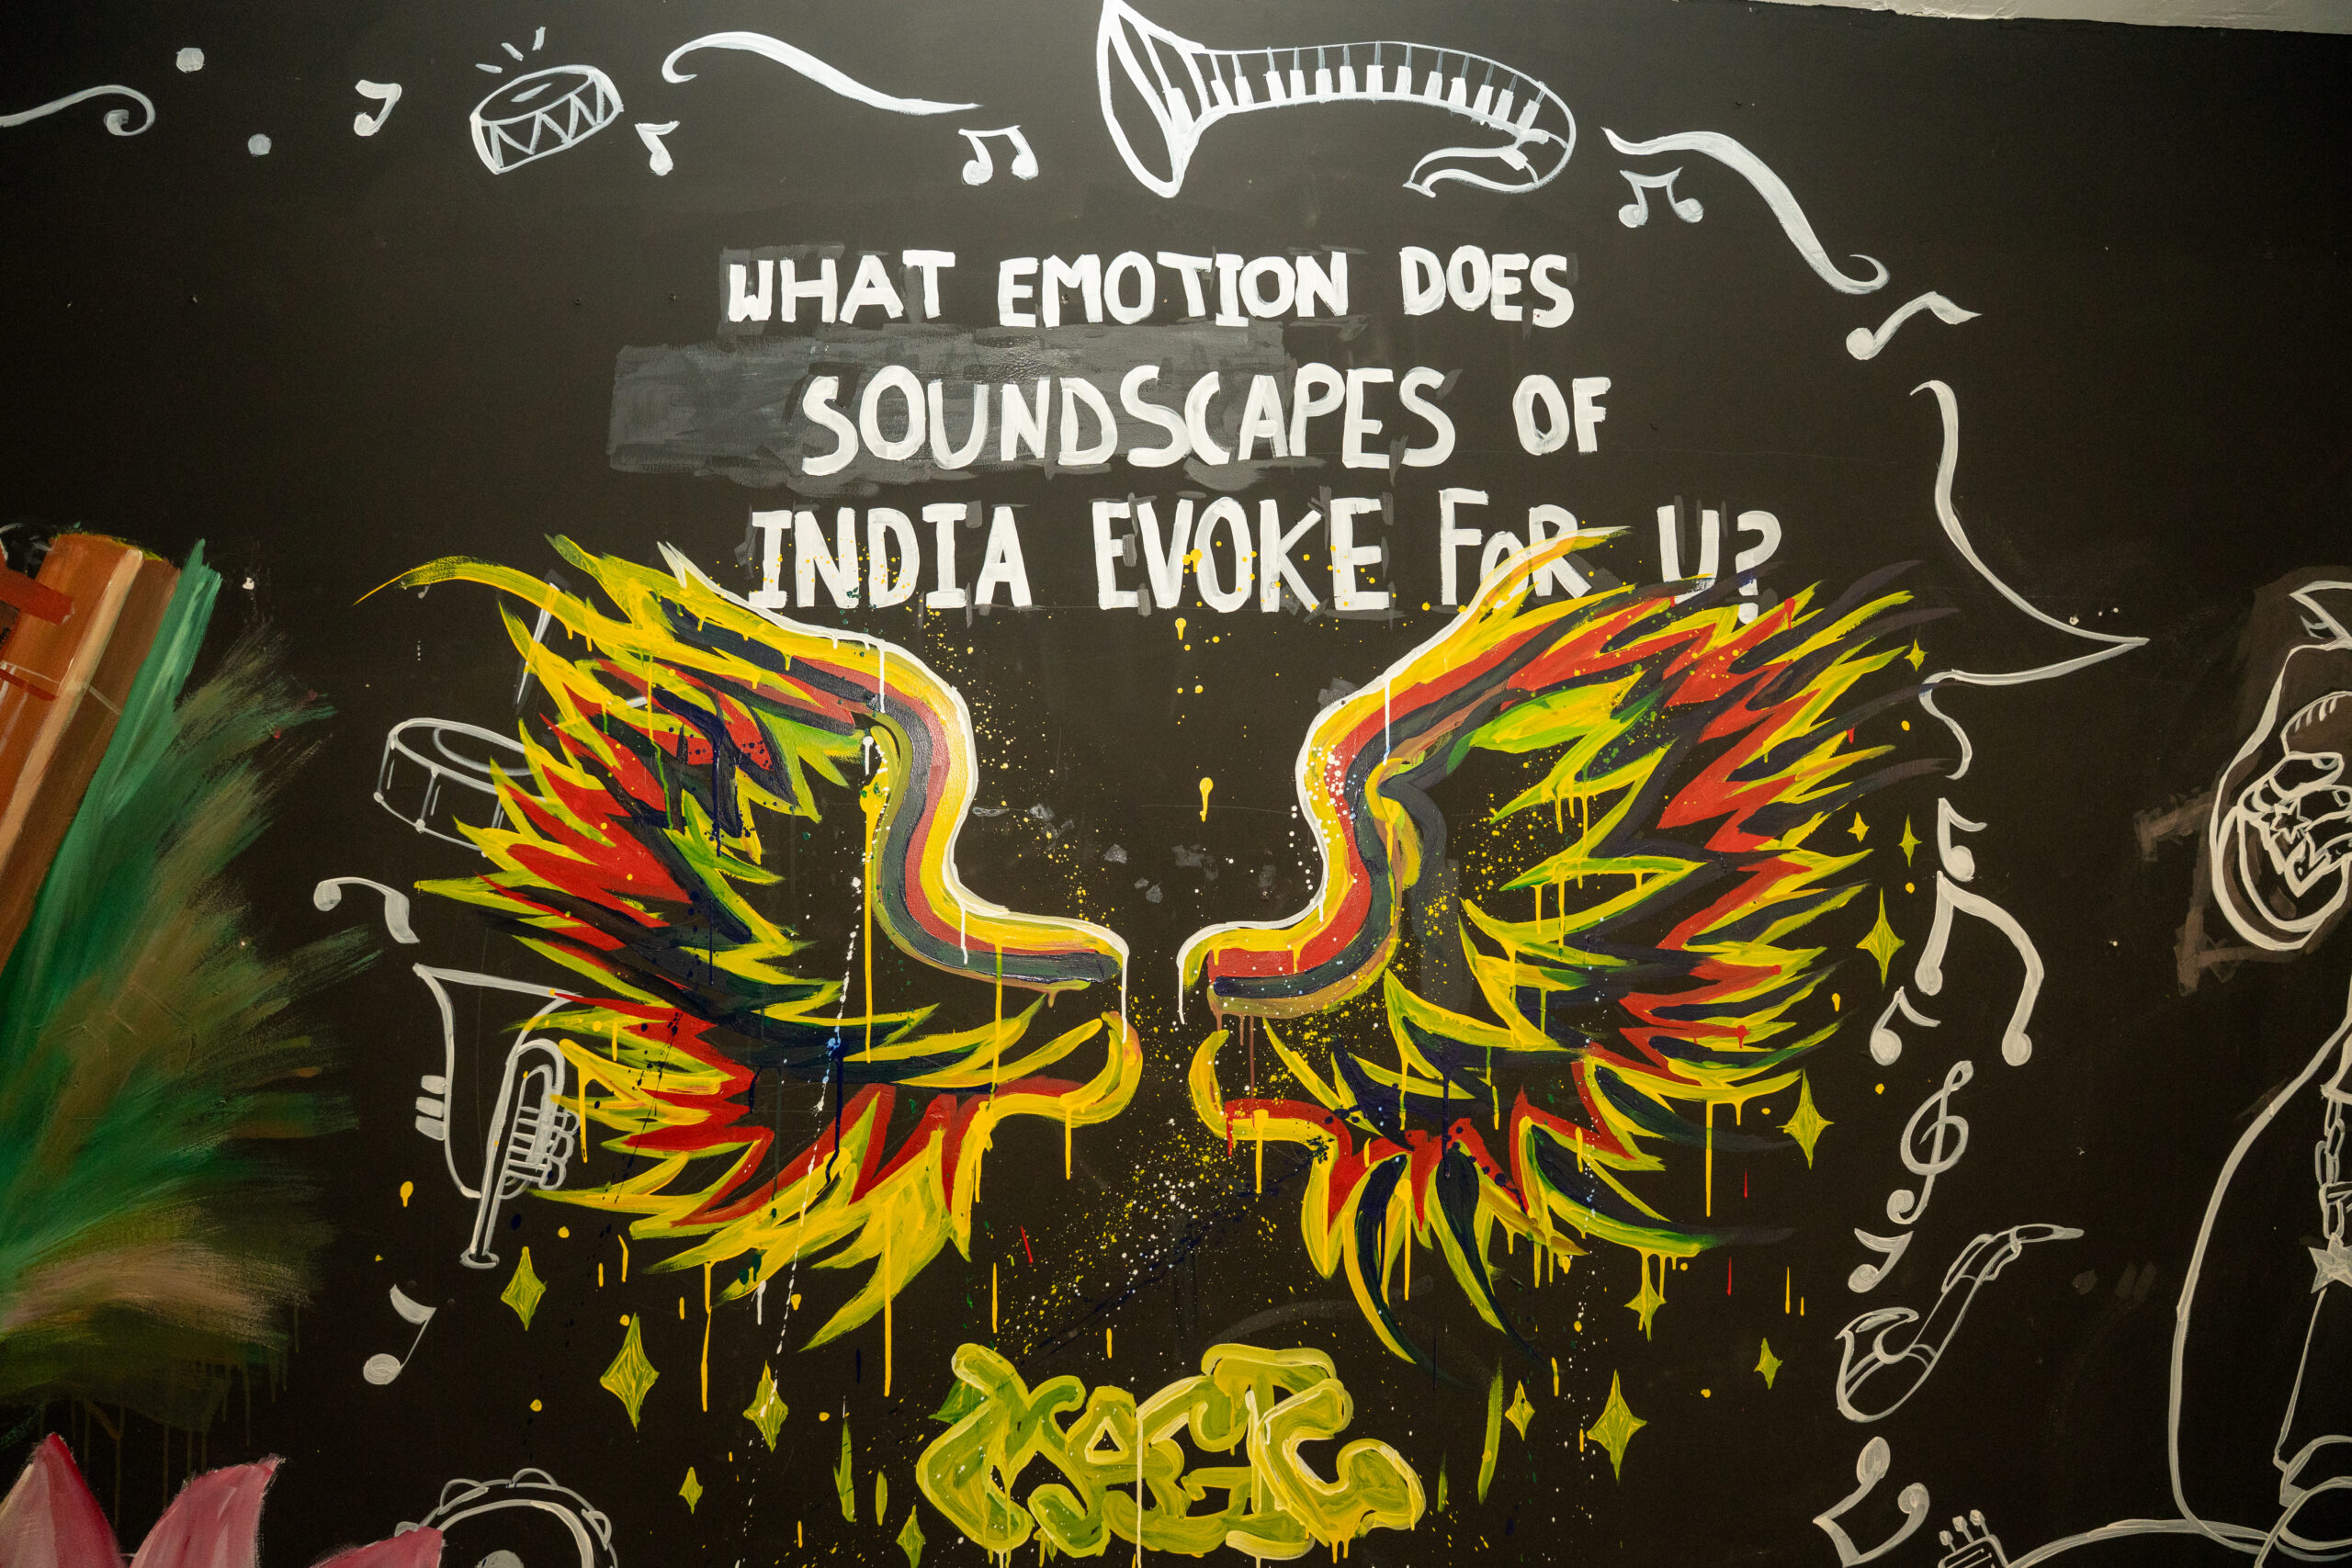 WHAT EMOTION DOES
SOUNDSCAPES OF
INDIA EVOKE FoR U?
MAGIC